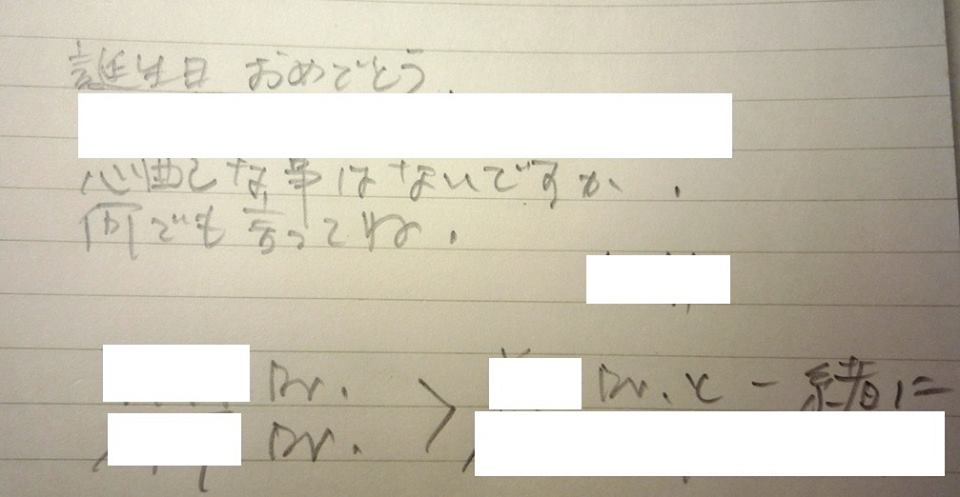 誕生日 おめでとう.
心配な事はないですか.
何でも言ってね.
Dr. > Dr. と一緒に
Dr.